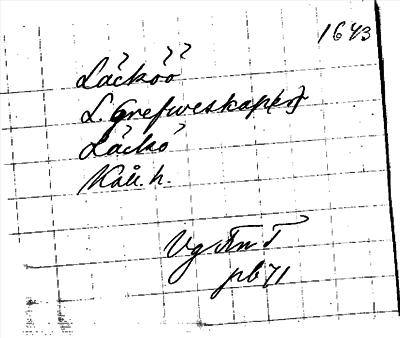 1643
Läcköö
L. Grefweskap(et)
Läckö
Kåll. h.
Vg
pb 71